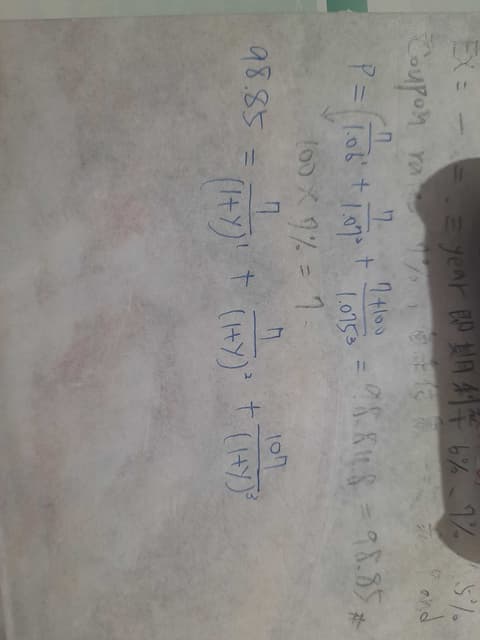 EX = 一 二 三 year 即期利 6%、7% .5%
Coupon 7%
P = 7/1.06¹ + 7/1.07² + 7+100/1.075³ = 98.848 = 98.85 #
100 × 7% = 7
98.85 = 7/(1+Y)¹ + 7/(1+Y)² + 107/(1+Y)³